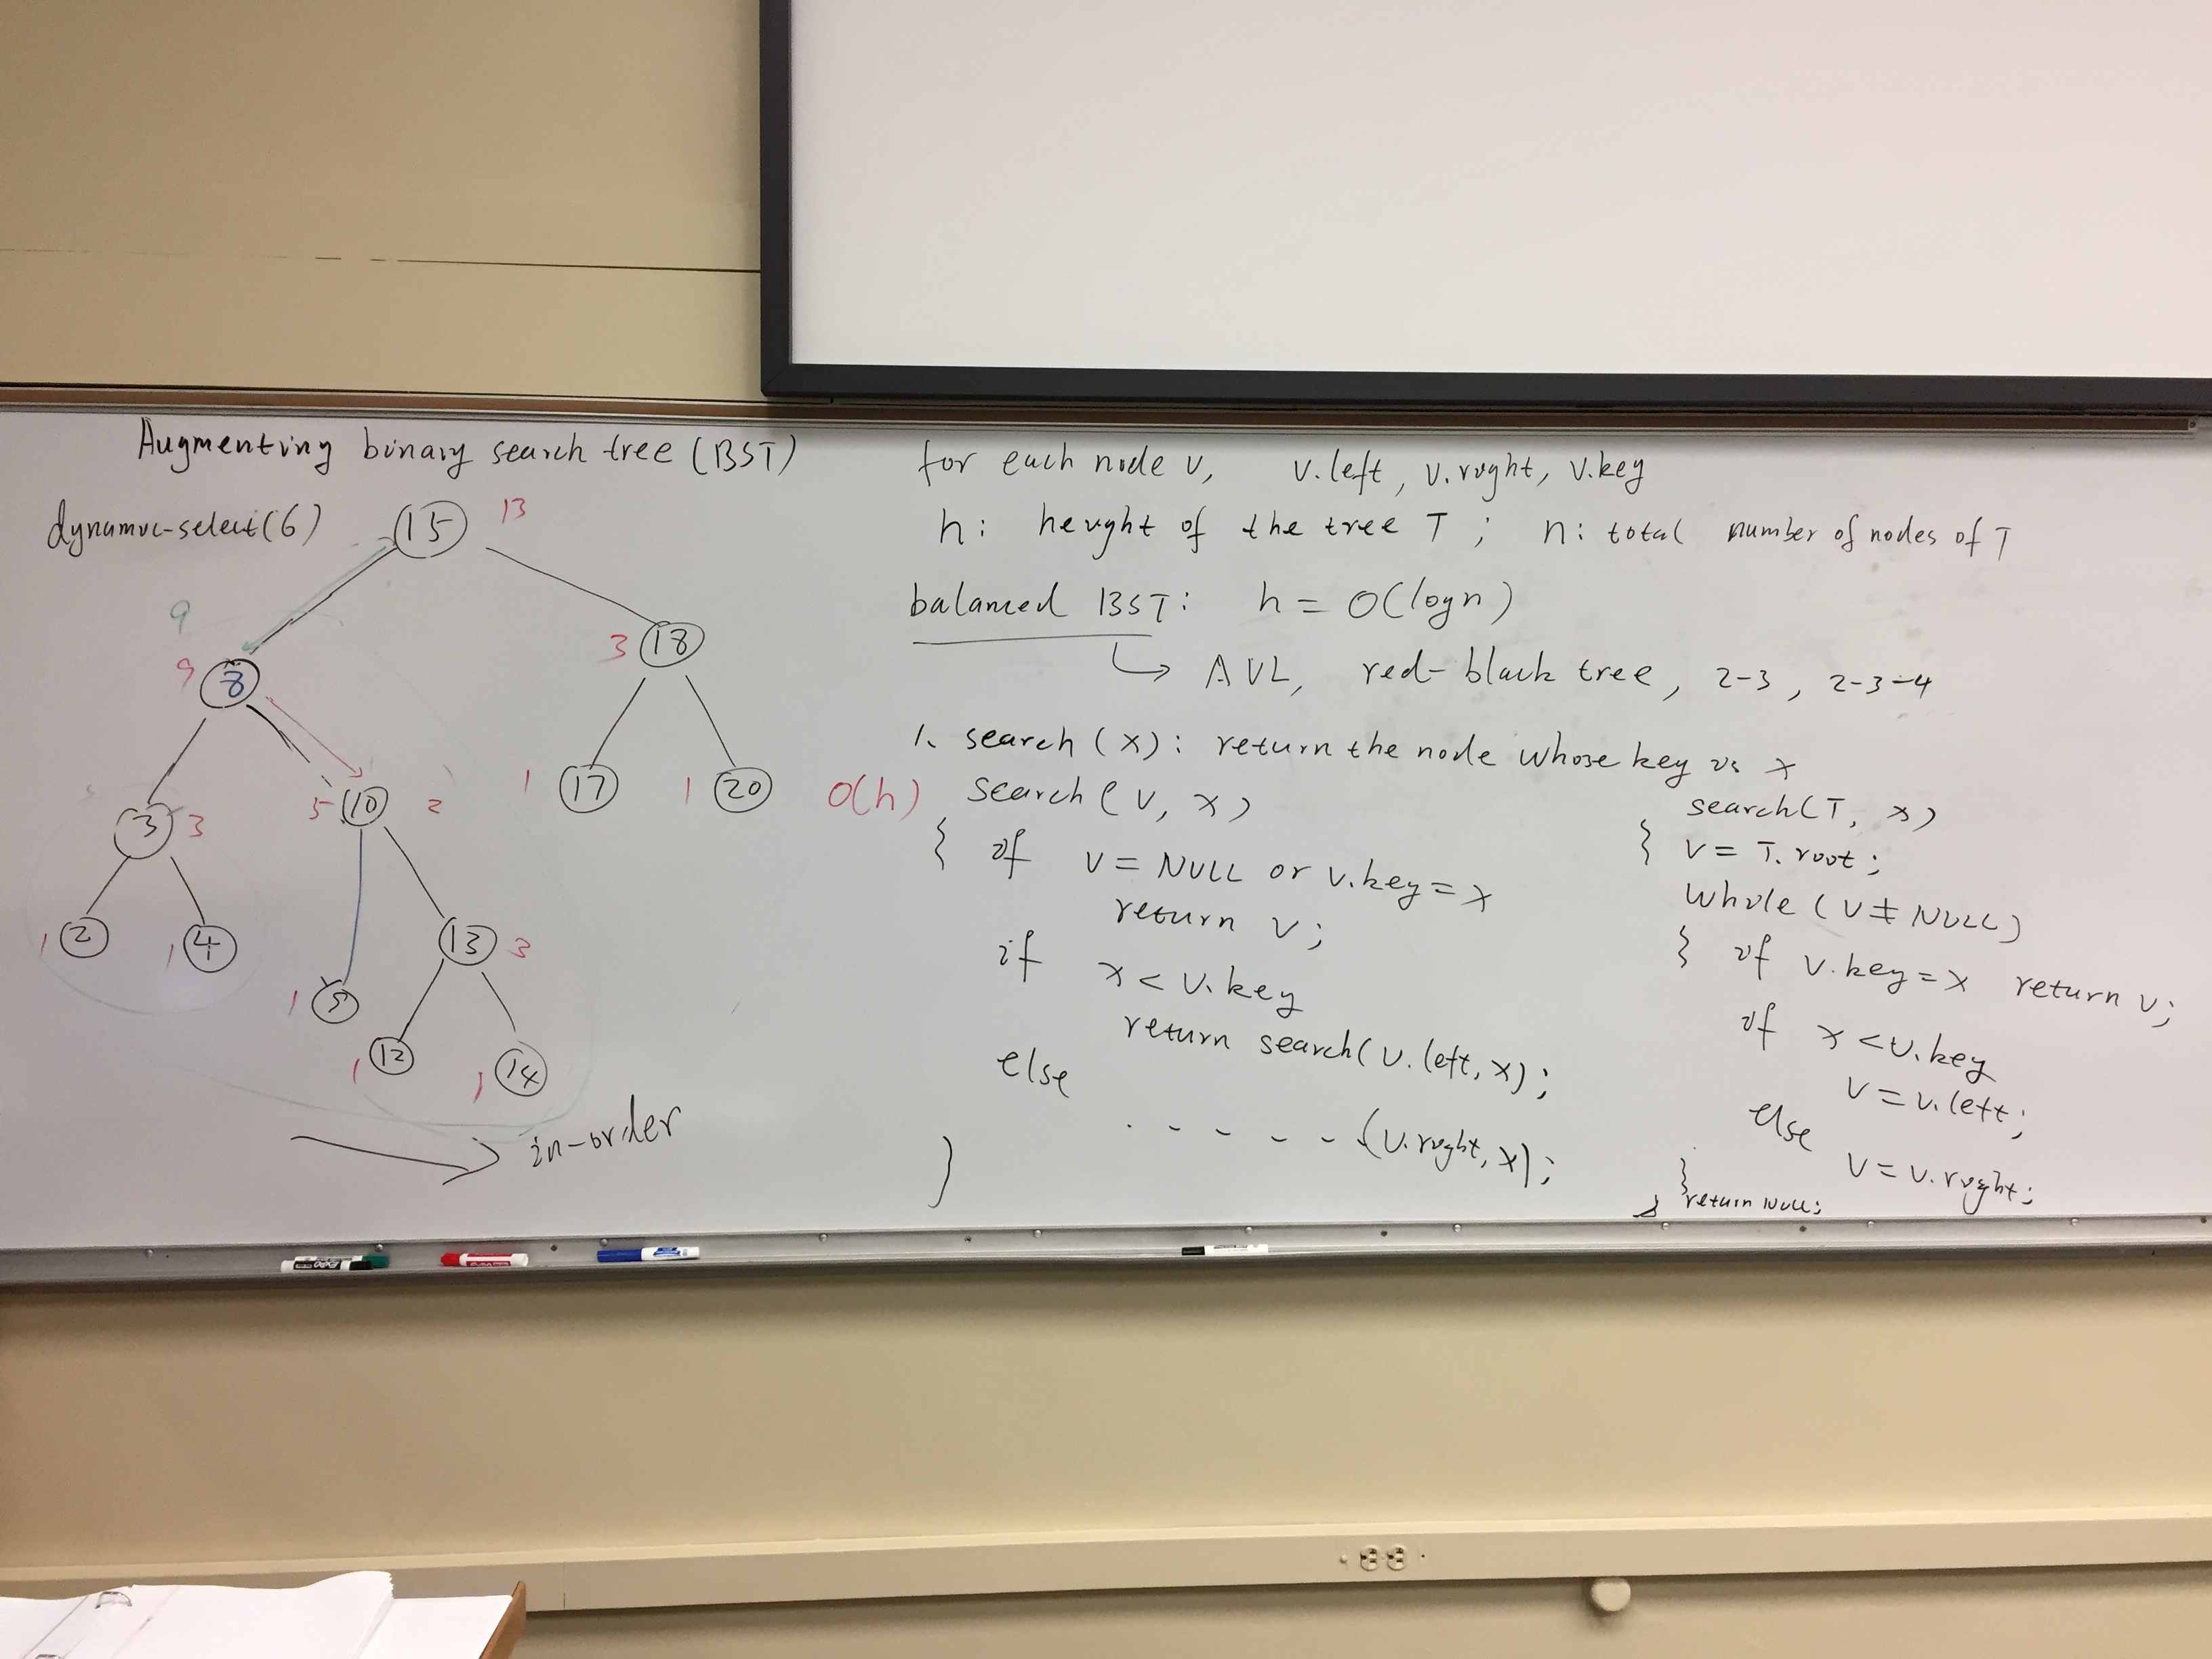 Augmenting binary search tree (BST)
dynamic-select(6)
15 13
9
9 8
3 18
3 3
5 10 2
1 17
1 20
1 2
1 4
13 3
1 9
1 12
1 14
in-order
for each node v, v.left, v.right, v.key
h: height of the tree T ; n: total number of nodes of T
balanced BST: h = O(logn)
AVL, red-black tree, 2-3, 2-3-4
1. search (x): return the node whose key is x
O(h) search (v, x)
{ if v = NULL or v.key = x
return v;
if x < v.key
return search(v.left, x);
else
. - - - - - (v.right, x);
}
search(T, x)
{ v = T.root;
while (v ≠ NULL)
{ if v.key = x return v;
if x < v.key
v = v.left;
else
v = v.right;
}
return NULL;
}